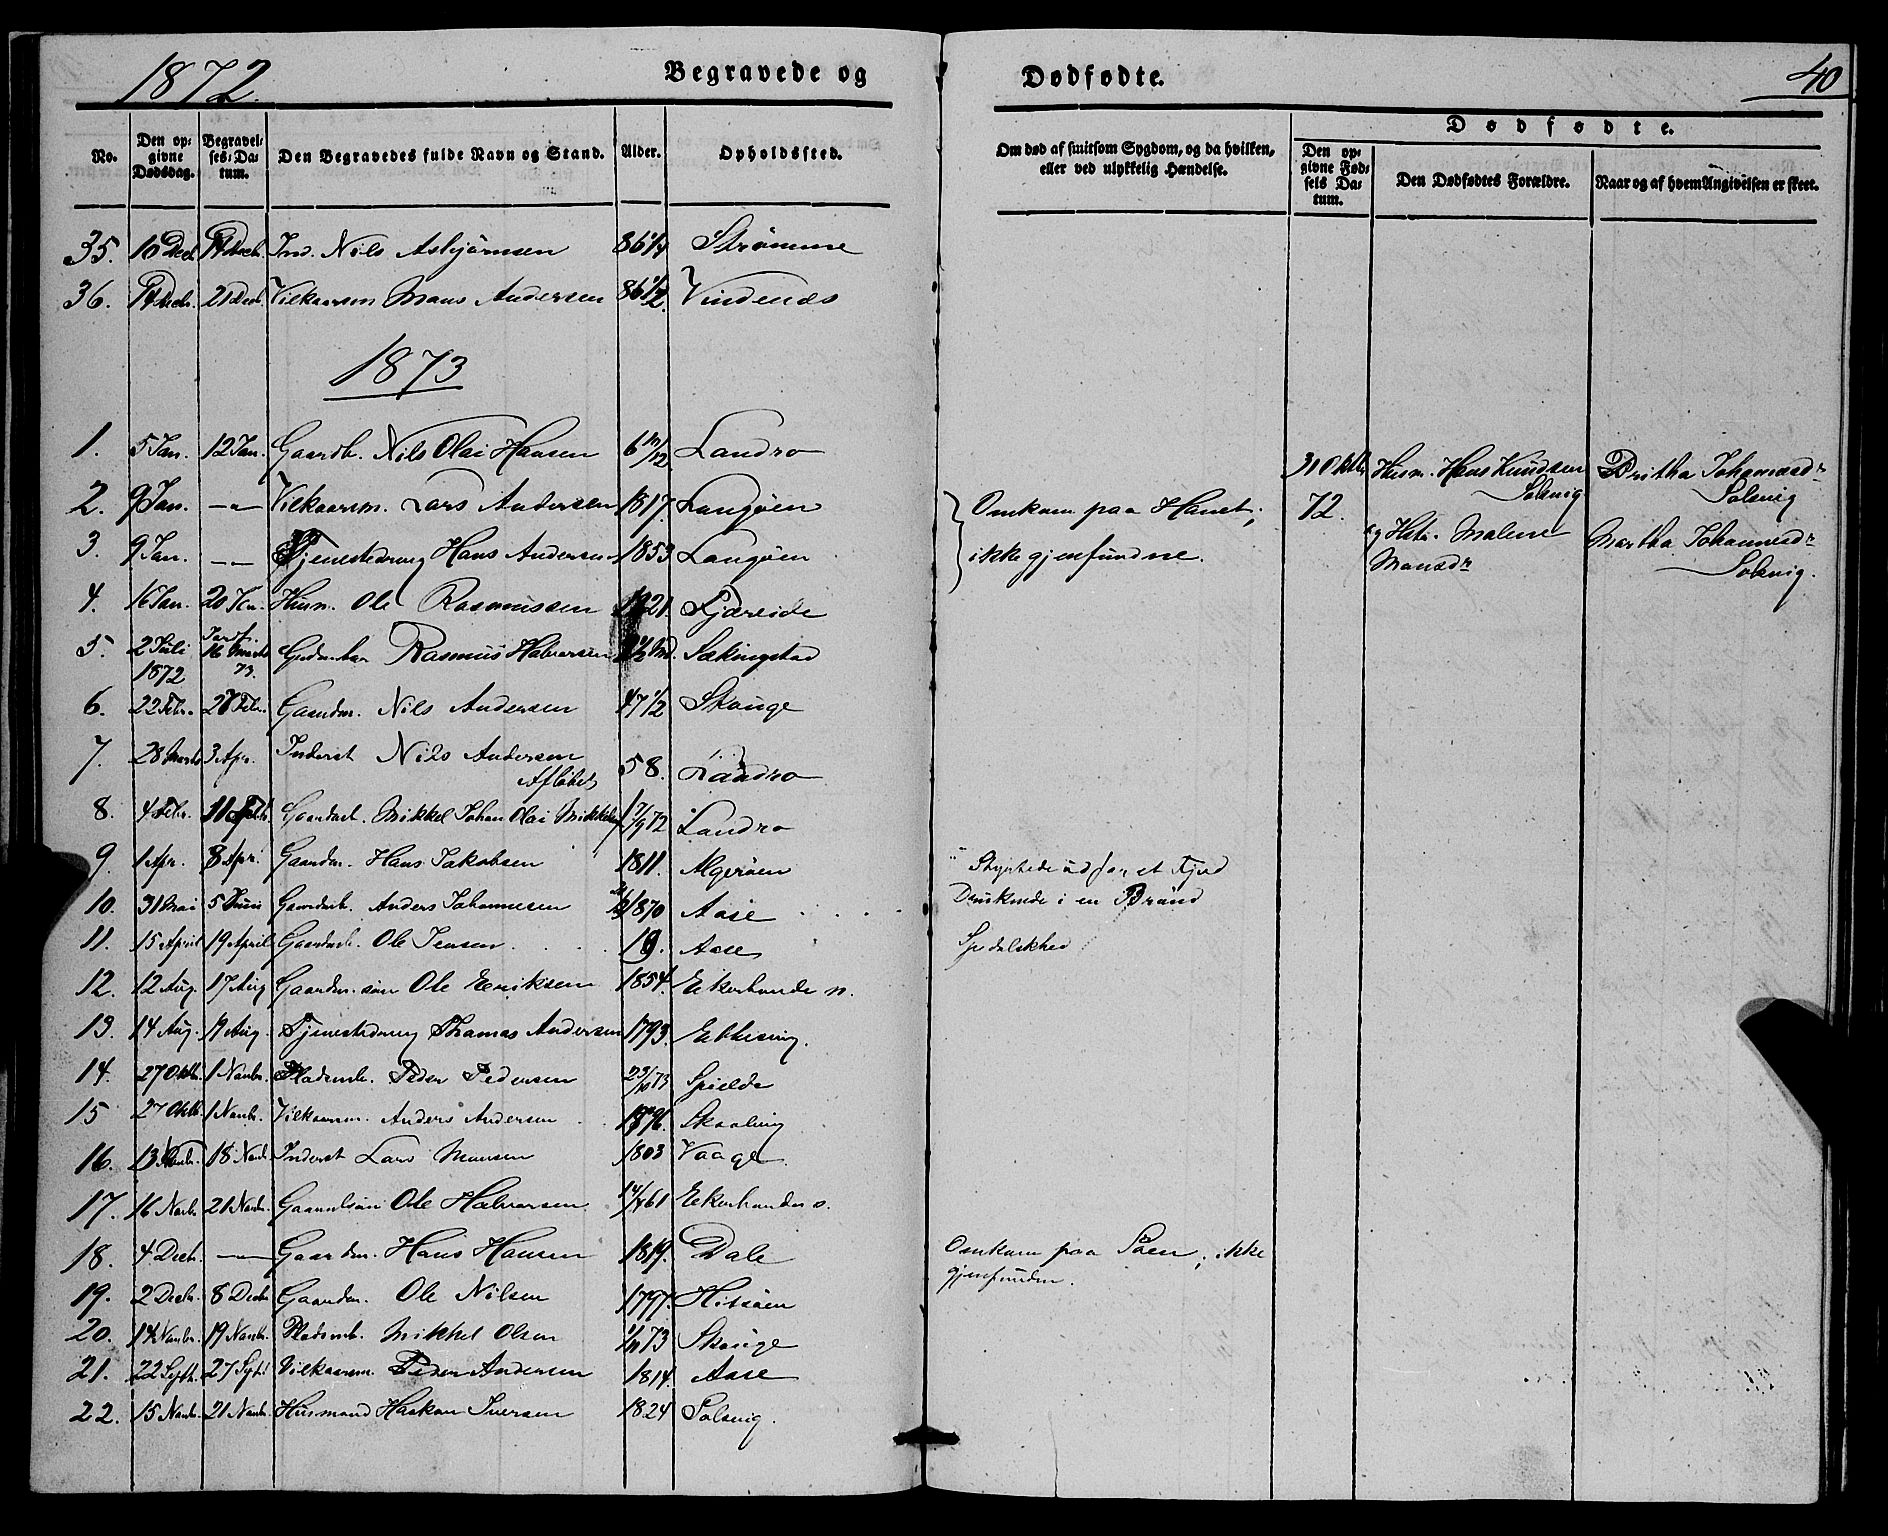 1872.
Begravede og
Dødfødte.
40
No.
Den op-
givne
Dødsdag.
Begravel-
ses-Da-
tum.
Den Begravedes fulde Navn og Stand.
Alder.
Opholdssted.
Om død af smitsom Sygdom, og da hvilken,
eller ved ulykkelig Hændelse.
Dødfødte.
Den op-
givne Fød-
sels Da-
tum.
Den Dødfødtes Forældre.
Naar og af hvem Angivelsen er skeet.
35. 10 Decb. 17 Decb. Ind. Nils Asbjørnsen 86 1/4 Strømme
36. 17 Decb. 21 Decb. Vilkaarsm. Mons Andersen 86 1/2. Vindenæs
1873
1. 5 Jan. 12 Jan. Gaardb. Nils Olai Hansen 6 10/12 Landro
2. 9 Jan. -"- Vilkaarsm. Lars Andersen 1817. Langøen
3. 9 Jan. -"- Tjenestedreng Hans Andersen 1853 Langøen
Omkom paa Havet;
ikke gjenfundne.
31 Oktb. 72. Husm. Hans Knudsen
Solsvig
og Hstr. Malene
Monsdr
Britha Johannesdr
Solsvig
Martha Johannesdr
Solsvig.
4. 16 Jan. 20 Jan. Husm. Ole Rasmussen 1821. Fjæreide
5. 2 Juli 1872 Jordf. 16 Marts 73. Rasmus Halvorsen 2 1/2 Md. Sækingstad
6. 22 Febr. 28 Febr. Gaardm. Nils Andersen 47 1/2 Skouge
7. 28 Marts 3 Apr. Inderst Nils Andersen
Afløbet
58. Landro
8. 4 Febr. 11 Febr. Gaardsb. Mikkel Johan Olai Mikkelsen 17/9 72 Landro
9. 1 Apr. 8 Apr. Gaardm. Hans Jakobsen 1811. Algerøen
Styrtede ud for et Fjeld
10. 31 Mai 5 Juni Gaardsb. Anders Johannesen 1870 Aase
Druknede i en Brønd
11. 15 April 19 April Gaardsb. Ole Jensen 19. Aase
Spedalskhed
12. 12 Aug. 17 Aug. Gaardm. søn Ole Eriksen 1854. Ekerhovde n.
13. 14 Aug. 19 Aug. Tjenestedreng Thomas Andersen 1793. Ebbesvig.
14. 27 Oktb. 1 Novbr. Pladsmb. Peder Pedersen 23/10 73 Spjelde
15 27 Oktb. 1 Novbr. Vilkaarsm. Anders Andersen 1796. Skaalvig
16. 13 Novbr. 18 Novb. Inderst Lars Monsen 1803 Vaage
17. 16 Novbr. 21 Novbr. Gaardsøn Ole Halvorsen 14/4 61 Ekerhovde n.
18. 4 Decb. -"- Gaardm. Hans Hansen 1819. Dale
Omkom paa Søen; ikke
gjenfunden.
19. 2 Decb. 8 Decb. Gaardm. Ole Nilsen 1797. Hitsøen
20. 14 Novbr. 19 Novbr. Pladsmb. Mikkel Olsen 1/11 73 Skouge
21. 22 Septb. 27 Septb. Vilkaarsm. Peder Andersen 1814. Aase
22. 15 Novbr. 21 Novbr. Husmand Haakon Iversen 1824 Solsvig.